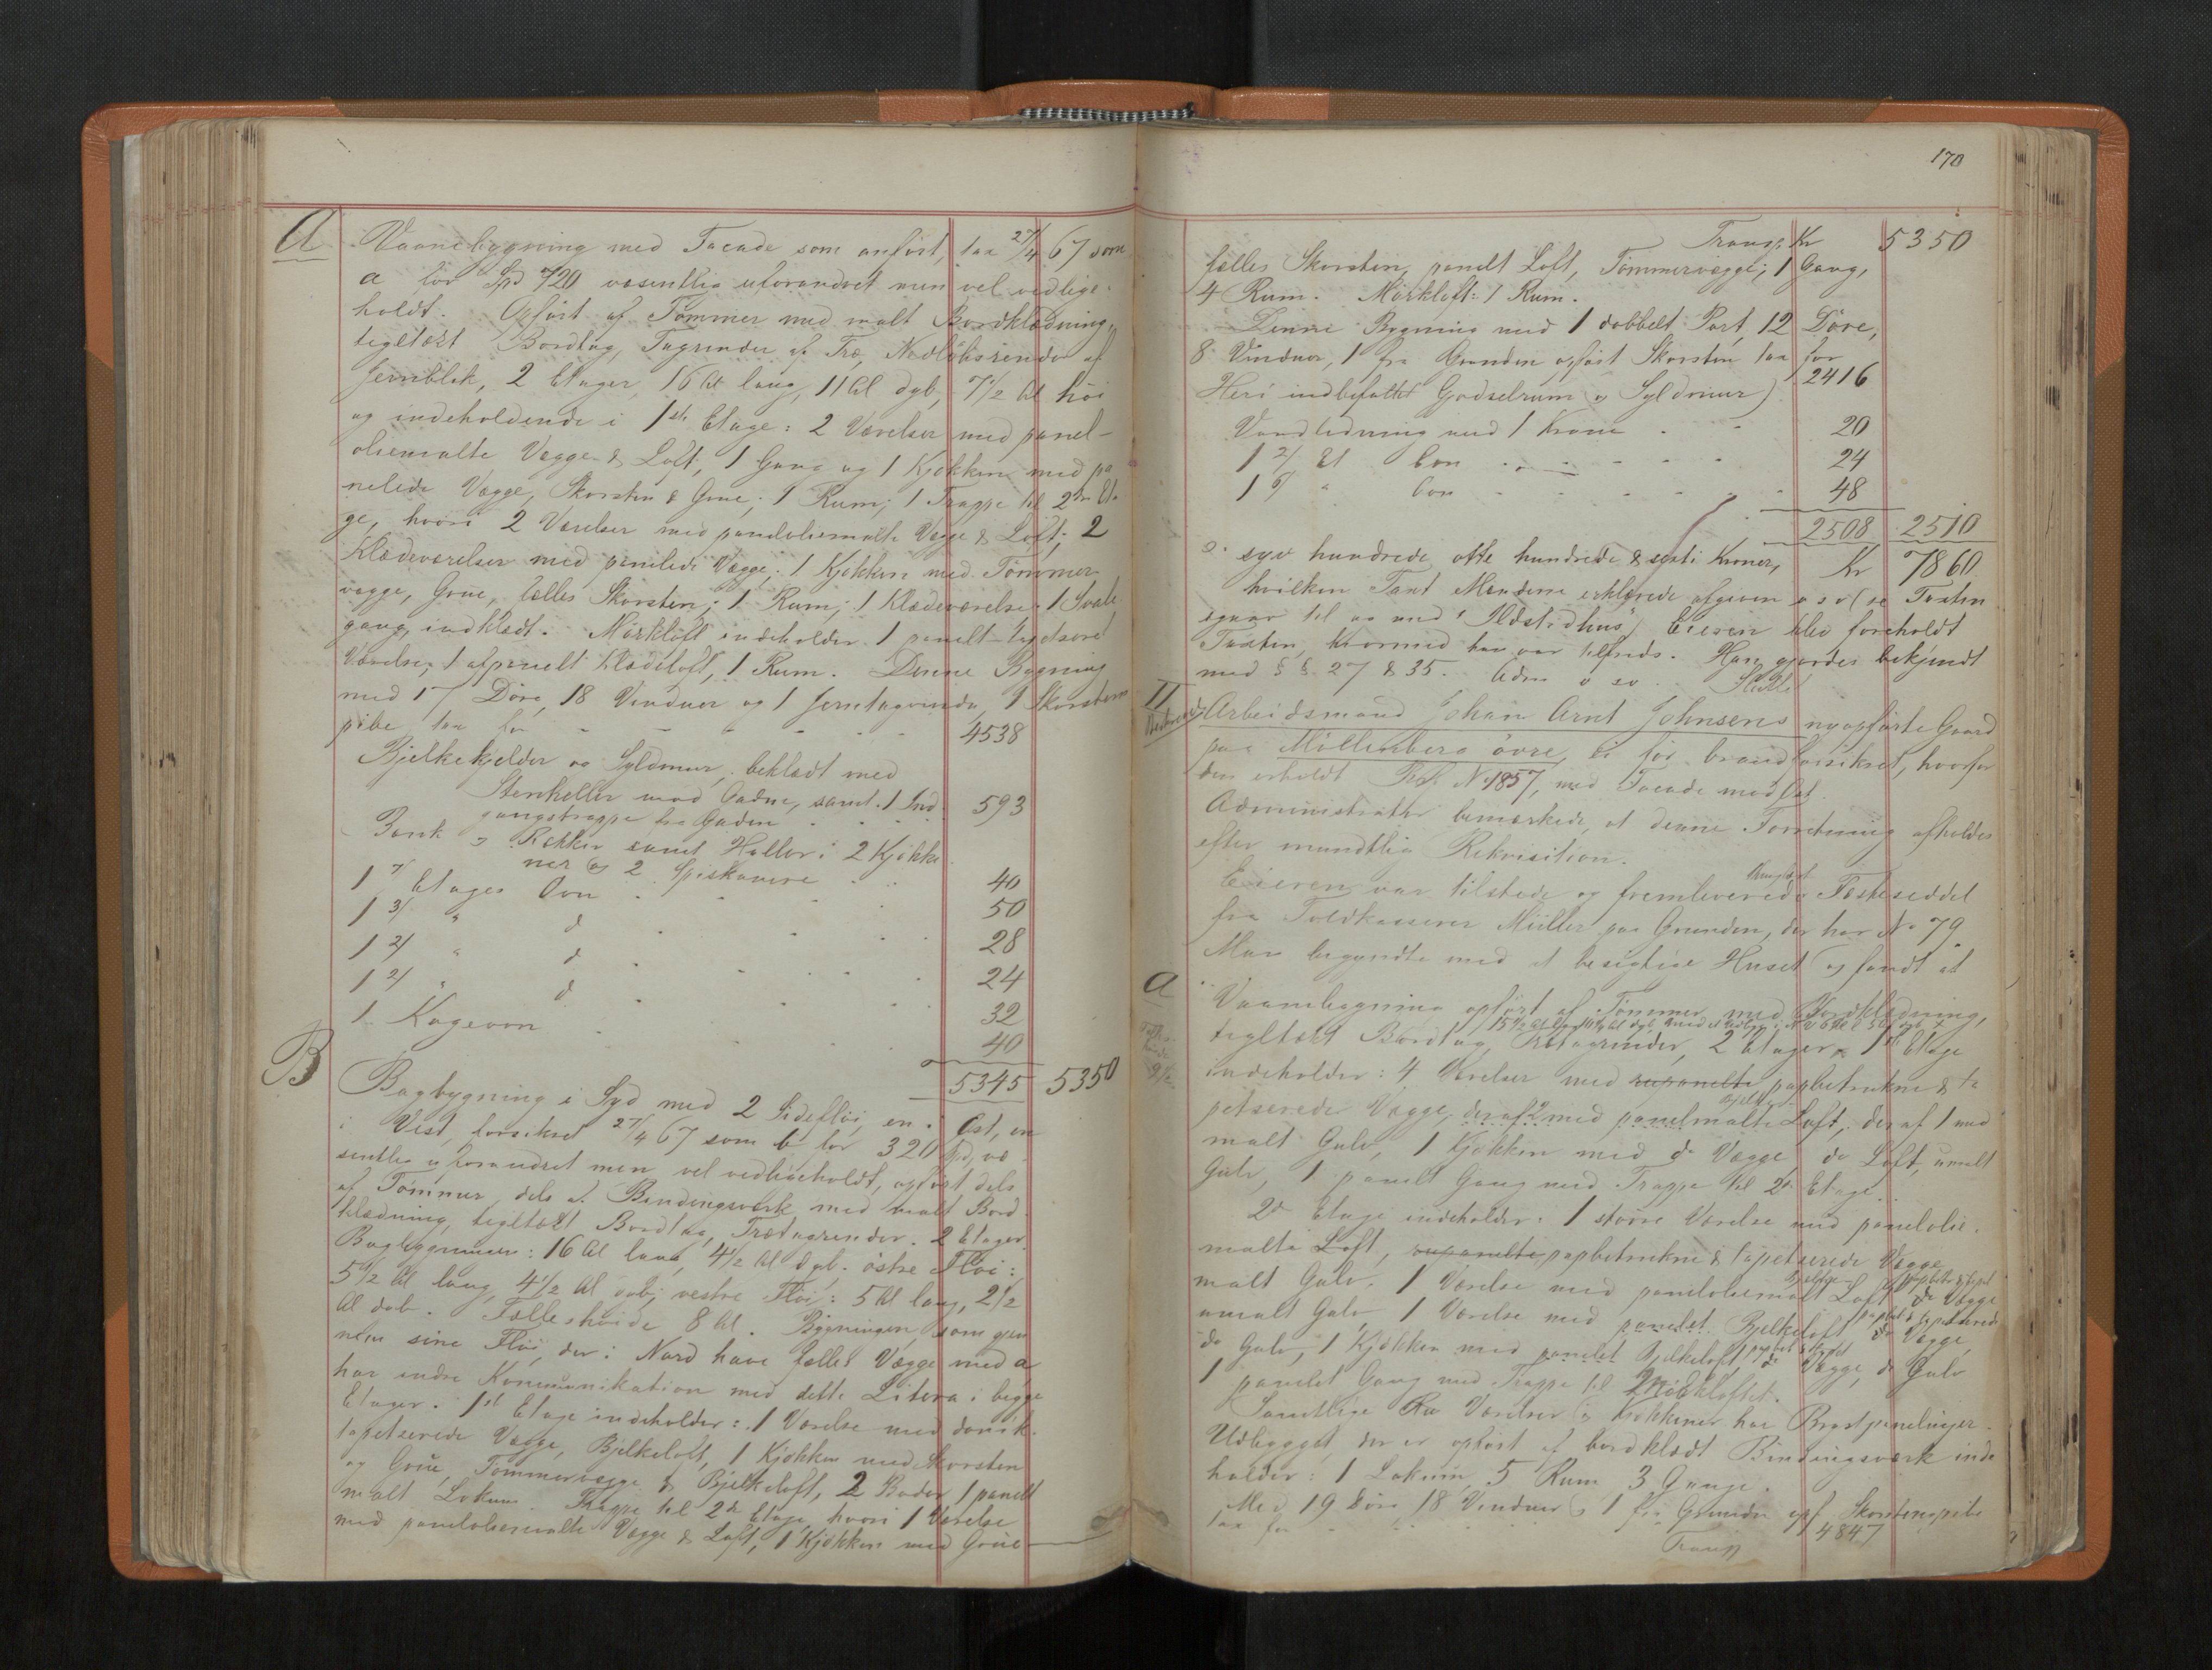 A
Vaanebygning med Facade som anført, tax 27/4 67 som
a for Spd 720 væsentlig uforandret men vel vedlige-
holdt. Opført af Tømmer med malt Bordklædning,
tegltækt Bordtag, Tagrender af Træ, Nedløbsrender af
Jernblik, 2 Etager, 16 Al lang, 11 Al dyb, 7 1/2 Al høi
og indeholdende i 1ste Etage: 2 Værelser med panel-
oliemalte Vægge & Loft, 1 Gang og 1 Kjøkken med pa
nelede Vægge, Skorsten & Grue; 1 Rum; 1 Trappe til 2den Eta
ge, hvori 2 Værelser med paneloliemalte Vægge & Loft; 2
Klædeværelser med panelede Vægge; 1 Kjøkken med Tømmer
vægge, Grue, fælles Skorsten; 1 Rum; 1 Klædeværelse, 1 Sval
gang, indklædt. Mørkloft indeholder 1 panelt tapetseret
Værelse, 1 afpanelt Klædeloft, 1 Rum. Denne Bygning
med 17 Døre, 18 Vinduer og 1 Jerntagvindu, 1 Skorstens
pibe tax for - - - - 4538
Bjelkekjelder og Syldmur, beklædt med
Stenheller mod Gaden, samt 1 Ind
gangstrappe fra Gaden - - 593
Bænk og Rækker samt Hylder i 2 Kjøkke
ner og 2 Spiskamre - - 40
1 7/ Etages Ovn - - - 50
1 3/ " d - - - 28
1 2/ " d - - - 24
1 2/ " d - - - 32
1 Kogeovn - - - 40
5345 5350
B
Bagbygning i Syd med 2 Sidefløi, en i Øst, en
i Vest, forsikret 27/4 67 som b for 320 Spd, væ
sentlig uforandret men vel vedligeholdt, opført dels
af Tømmer, dels af Bindingsværk med malt Bord
klædning, tegltækt Bordtag, Trætagrender. 2 Etager.
Bagbygningen: 16 Al lang, 4 1/2 Al dyb. østre Fløi:
5 1/2 Al lang, 4 1/2 Al dyb; vestre Fløi: 5 Al lang, 2 1/2
Al dyb. Fælleshøide 8 Al. Bygningen, som gjen
nem sine Fløi, der i Nord have fælles Vægge med a
har indre Kommunikation med dette Litera i begge
Etager. 1ste Etage indeholder: 1 Værelse med dansk-
tapetserede Vægge, Bjelkeloft, 1 Kjøkken med Skorsten
og Grue, Tømmervægge & Bjelkeloft, 2 Boder, 1 panelt
malt Lokum. Trappe til 2de Etage, hvori 1 Værelse
med paneloliemalte Vægge & Loft, 1 Kjøkken med Grue
170
Transp. Kr 5350
fælles Skorsten, panelt Loft, Tømmervægge; 1 Gang,
4 Rum. Mørkloft: 1 Rum.
Denne Bygning med 1 dobbelt Port, 12 Døre,
8 Vinduer, 1 fra Grunden opført Skorsten tax for
Heri indbefattet Gjødselrum og Syldmur) 2416
Vandledning med 1 Krane - - 20
1 2/ Et Ovn - - - - 24
1 6/ " Ovn - - - - 48
2508 2510
Kr 7860
: syv hundrede otte hundrede & sexti Kroner,
hvilken Taxt Mændene erklærede afgiven o s v (se Taxten
ovenfor til og med "Ildstedhus") Eieren blev foreholdt
Taxten, hvormed han var tilfreds. Han gjordes bekjendt
med § § 27 & 35. Adm o s v. Sluttet
II
Arbeidsmand Johan Arnt Johnsens nyopførte Gaard
paa Møllenberg øvre, ei før brandforsikret, hvorfor
den erholdt Fors. No 1857, med Facade mod Øst.
Administrator bemærkede, at denne Forretning afholdes
efter mundtlig Rekvisition.
Eieren var tilstede og fremleverede Festeseddel
fra Toldkasserer Müller paa Grunden, der har No 79.
Man begyndte med at besigtige Huset og fandt at
a
Vaanebygning opført af Tømmer med Bordklædning,
tegltækt Bordtag, Trætagrender, 2 Etager. 1ste Etage
indeholder: 4 Værelser med rupanelte papbetrukne & ta
petserede Vægge, deraf 2 med panelmalte Loft, deraf 1 med
malt Gulv, 1 Kjøkken med do Vægge, do Loft, umalt
Gulv, 1 panelt Gang med Trappe til 2de Etage.
2de Etage indeholder: 1 større Værelse med panelolie-
malte Loft, rupanelte papbetrukne & tapetserede Vægge
malt Gulv, 1 Værelse med paneloliemalt Loft do Vægge
umalt Gulv, 1 Værelse med panelet Bjelkeloft, do Vægge,
do Gulv, 1 Kjøkken med panelet Bjelkeloft, do Vægge, do Gulv
1 panelet Gang med Trappe til Mørkloftet.
Samtlige Værelser og Kjøkkener har Brystpanelinger.
Udbygget, der er opført af bordklædt Bindingsværk inde
holder: 1 Lokum, 5 Rum, 3 Gange.
Med 19 Døre, 18 Vinduer & 1 fra Grunden opf Skorstenspibe
tax for - - - - 4847
Transp